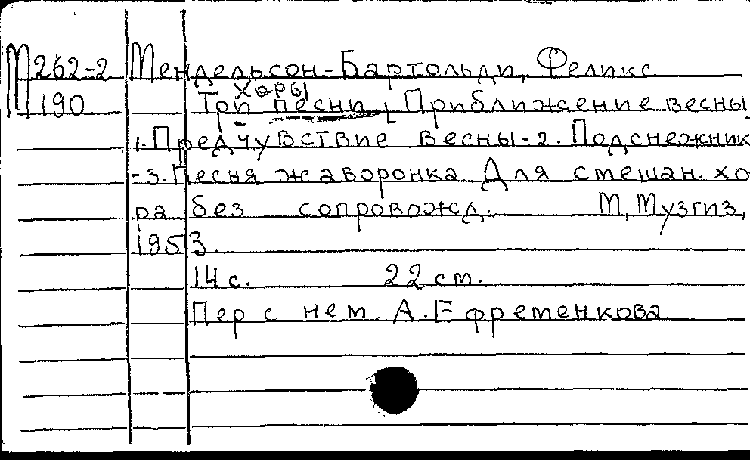 М262-2 Мендельсон-Бартольди, Феликс
Хоры
190 Три песни [Приближение весны
1. Предчувствие весны-2. Подснежник
-3. Песня жаворонка. Для смешан. хо
ра без сопровожд. М, Музгиз,
1953.
14 с. 22 см.
Пер с нем. А. Ефременкова